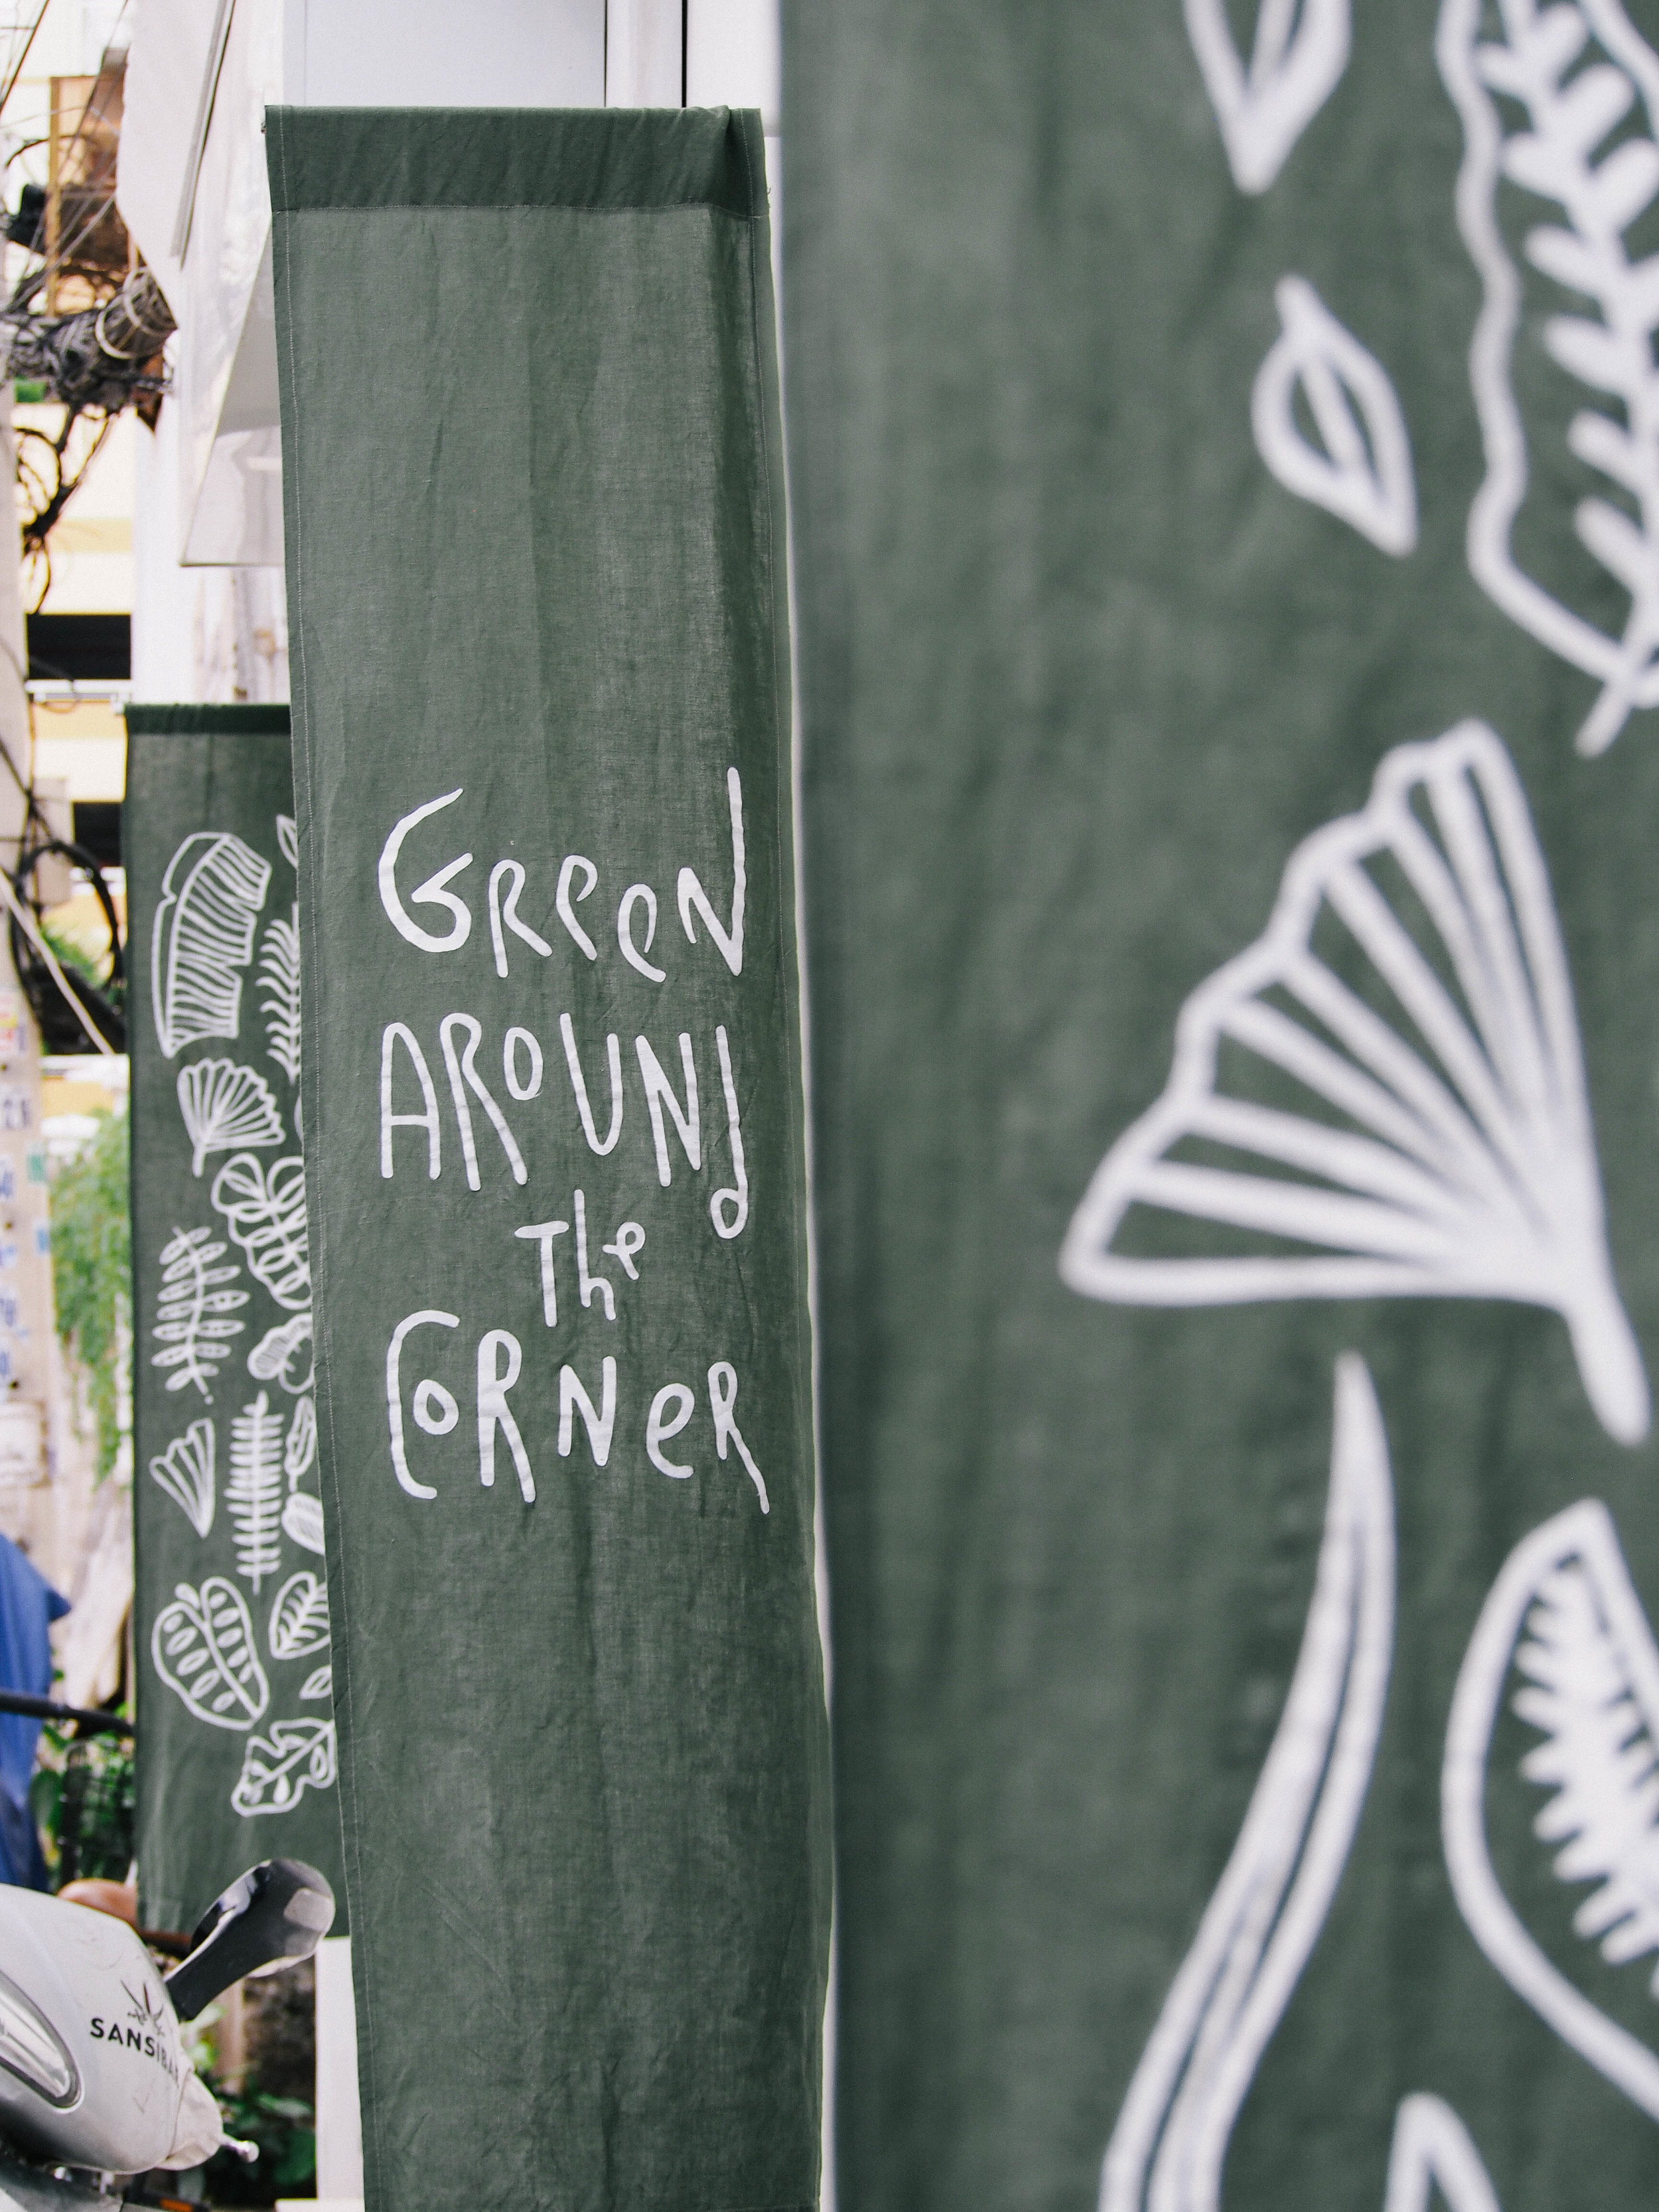 GReeN
AROUNd
The
CORNeR
SANSIBAR